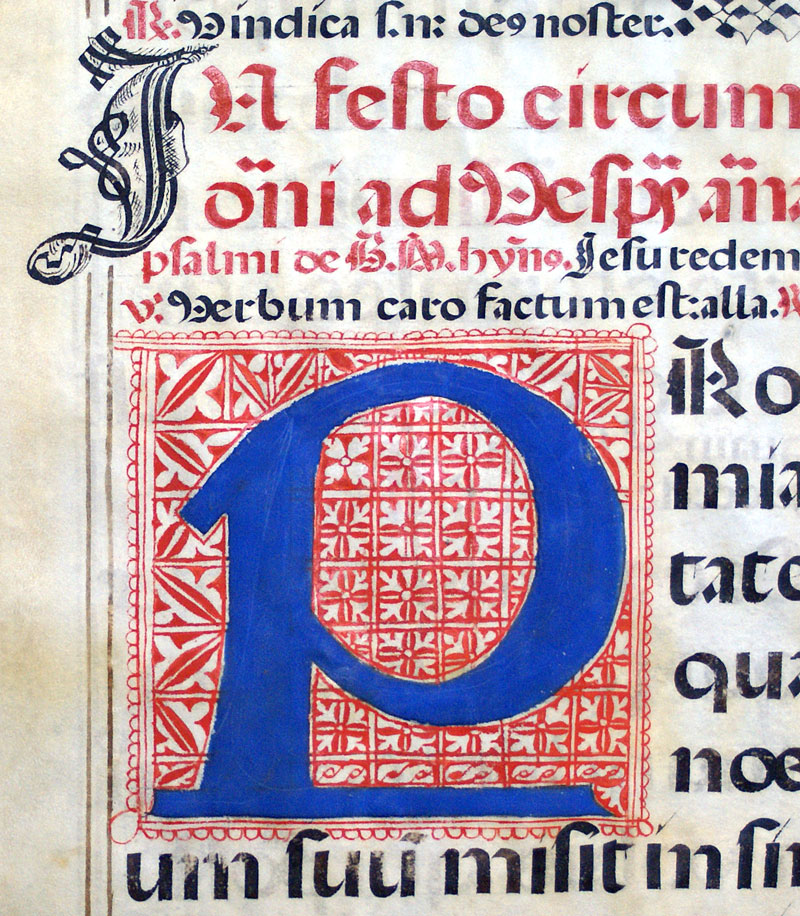 R. Vindica s.n: de9 noster.
IN festo circum
õni ad Vesp̃ ãña
psalmi de B. M. hỹn9. Jesu redem
v: Verbum caro factum est: alla. R
PRo
mia
tate
qua
noe
um suũ misit in sin